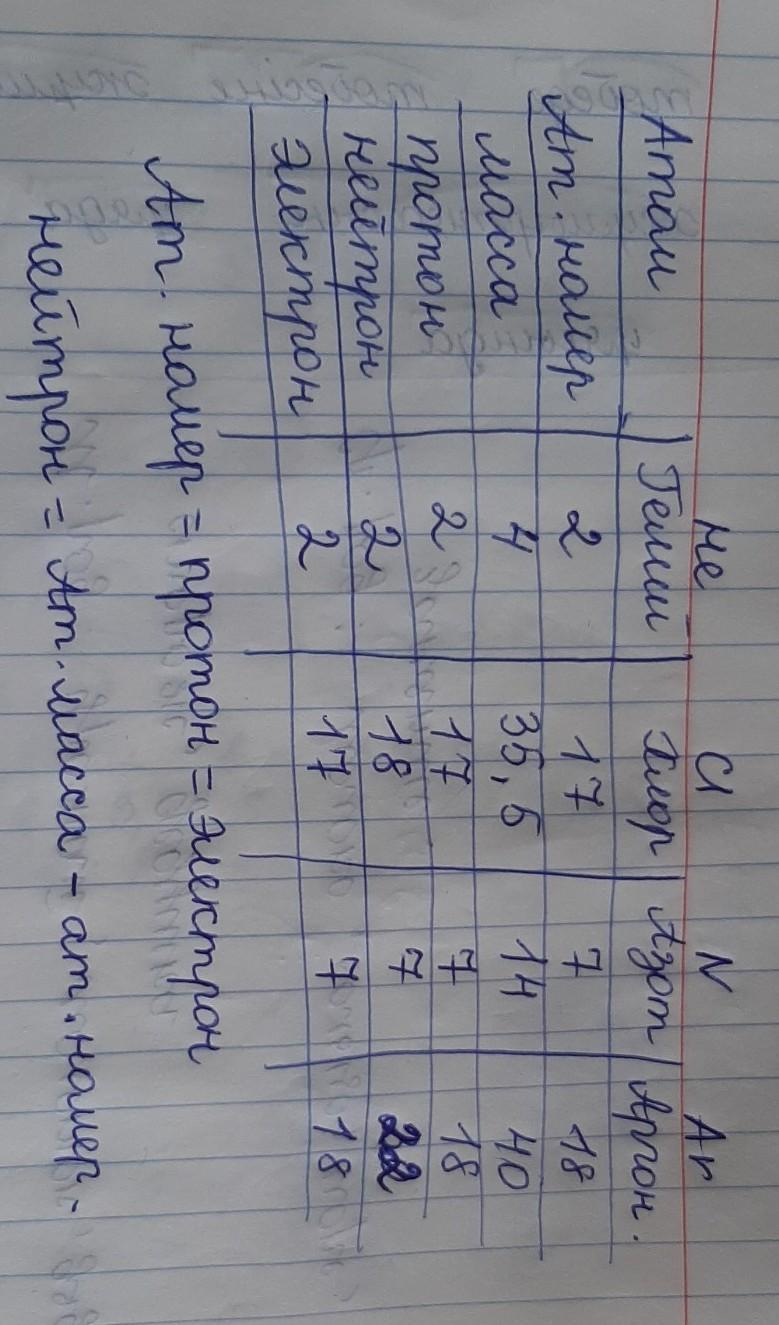 He Cl N Ar
Атом Гелий Хлор Азот Аргон.
Ат. номер 2 17 7 18
масса 4 35,5 14 40
протон 2 17 7 18
нейтрон 2 18 7 22
электрон 2 17 7 18
Ат. номер = протон = электрон
нейтрон = Ат. масса - ат. номер.